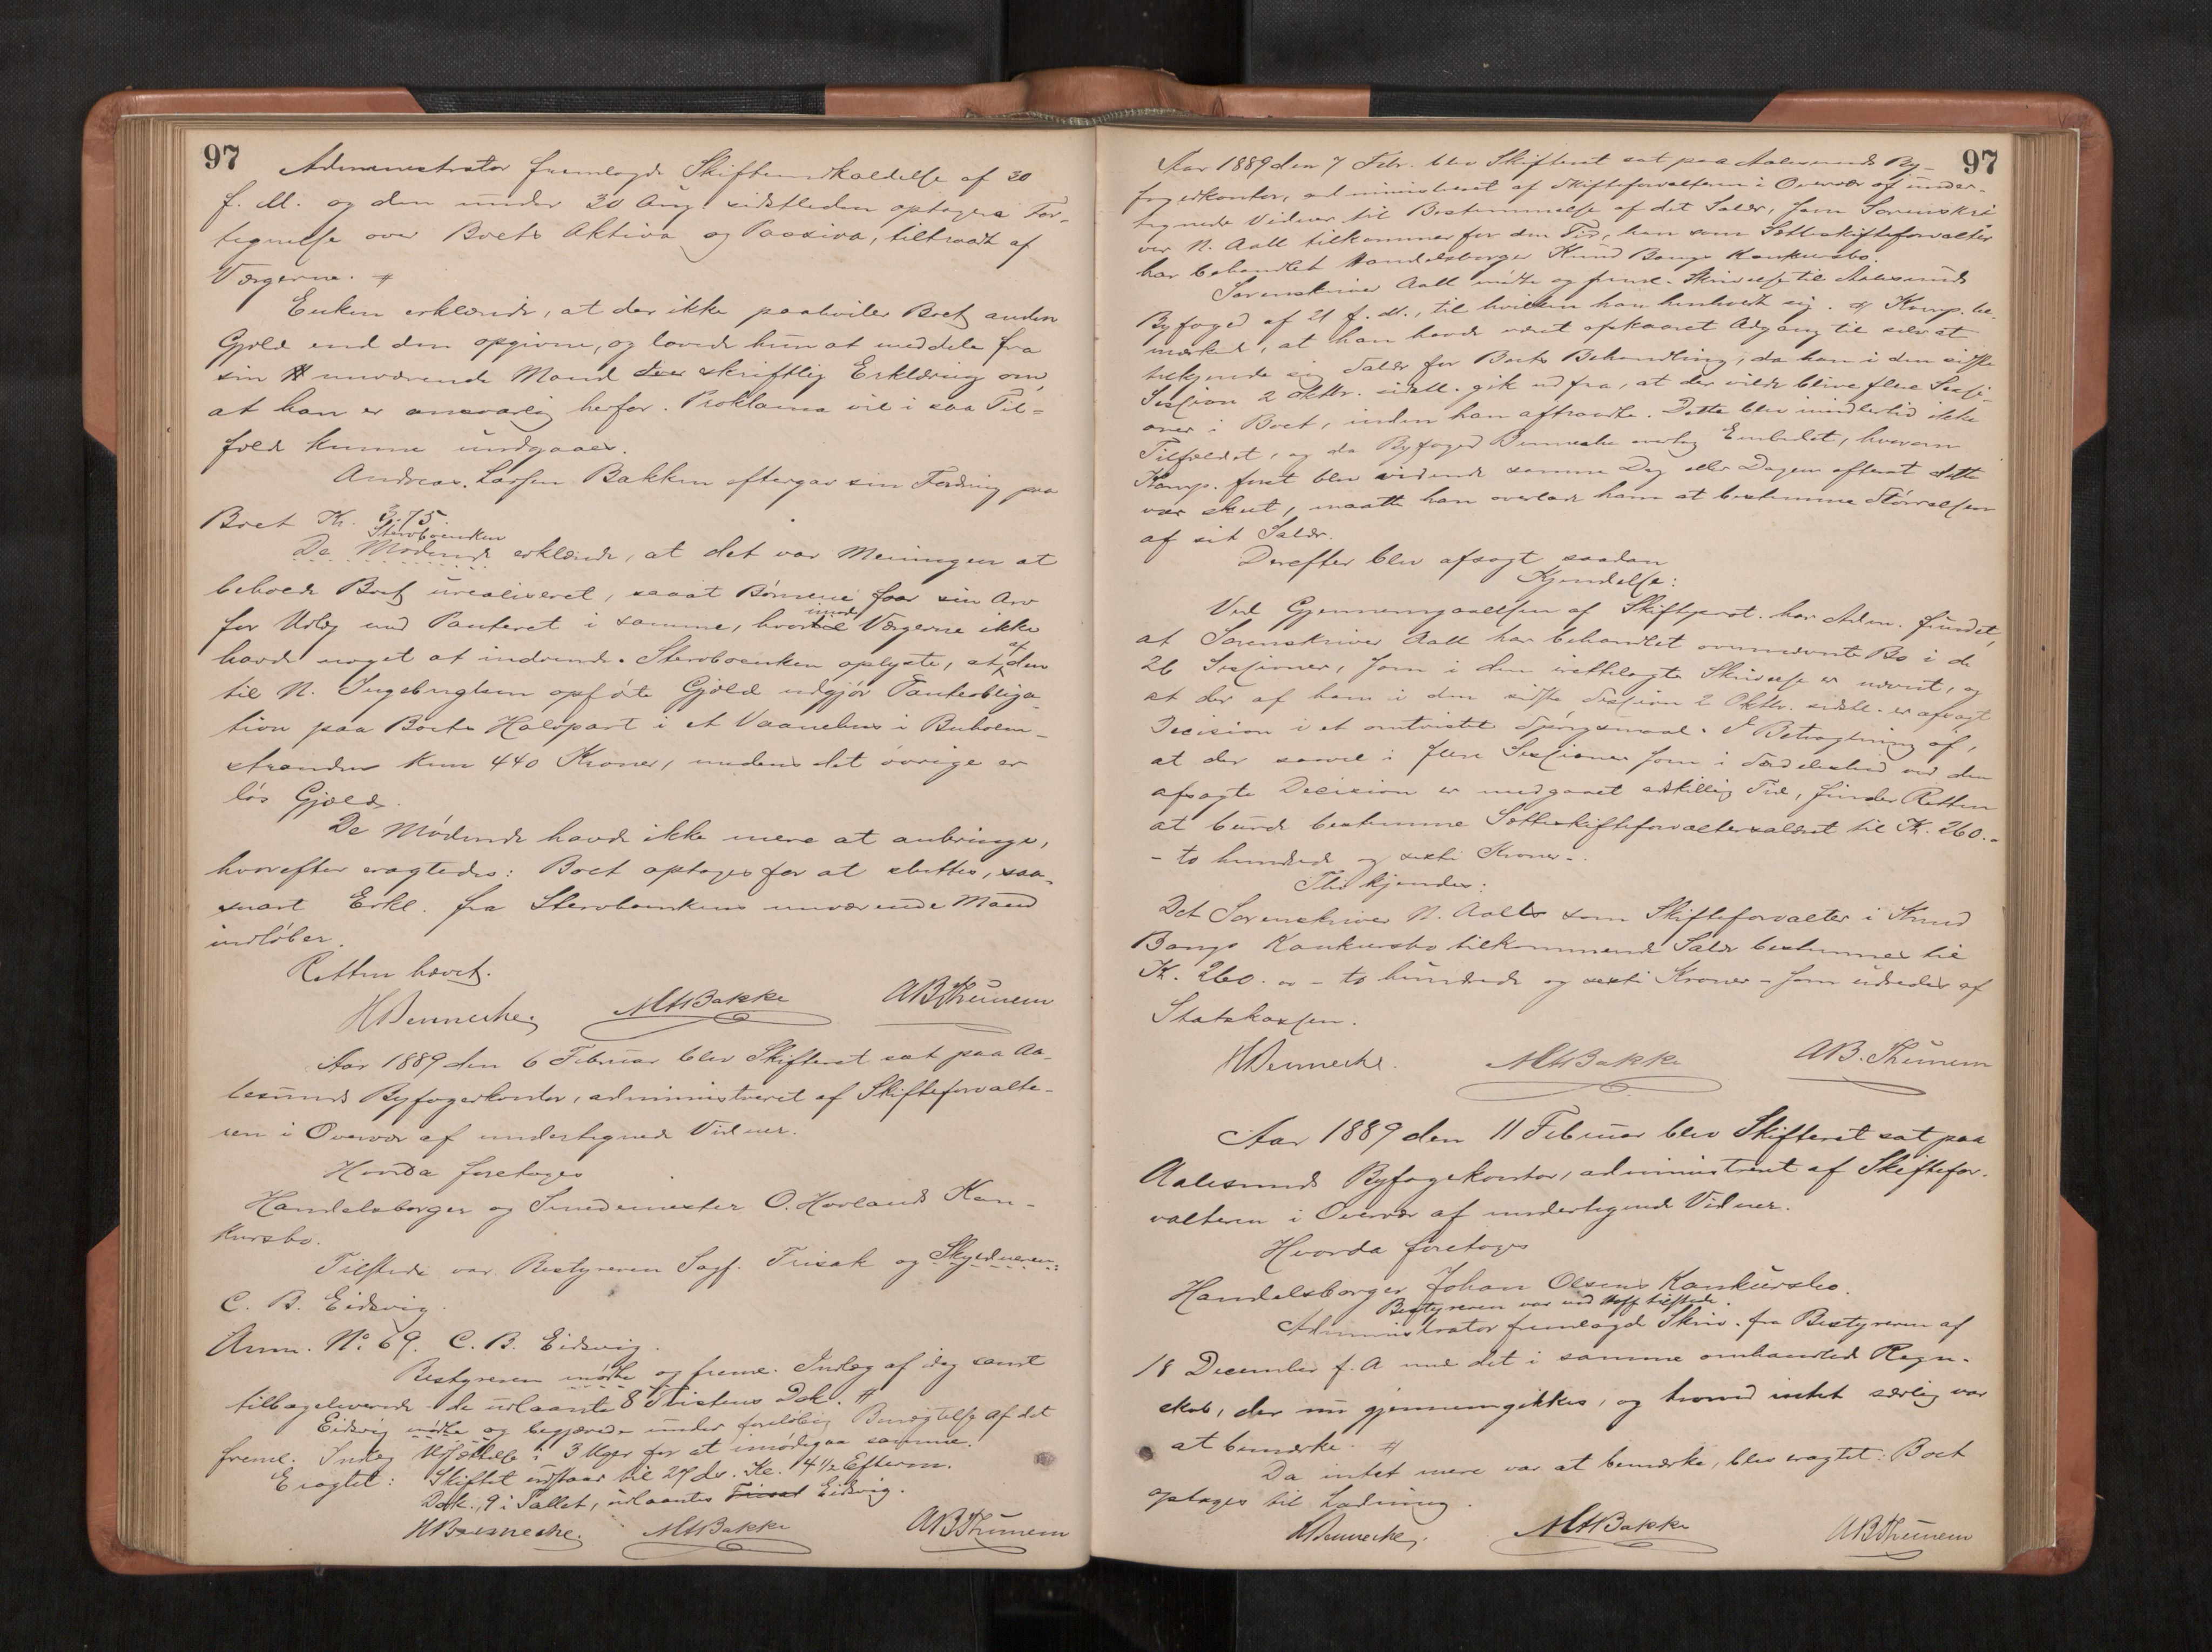 97
Administrator fremlagde Skifteindkaldelse af 30
f. M. og den under 30 Aug. sidstleden optagne For-
tegnelse over Boets Aktiva og Passiva, tiltraadt af
Værgerne. #
Enken erklærede, at der ikke paahviler Boet anden
Gjæld end den opgivne, og lovede hun at meddele fra
sin nuværende Mand skriftlig Erklæring om,
at han er ansvarlig herfor. Proklama vil i saa Til-
fælde kunne undgaaes.
Andreas Larsen Bakken eftergav sin Fordring paa
Boet Kr. 3.75
Stervboenken
De Mødende erklærede, at det var Meningen at
beholde Boet urealiseret, saaat Børnene faar sin Arv
imod
for Udlæg med Panteret i samme, hvortil Værgerne ikke
af
havde noget at indvende. Stervboenken oplyste, at den
til N. Ingebrigtsen opførte Gjæld udgjør Panteobliga-
tion paa Boets Halvpart i et Vaanehus i Buholm-
stranden kun 440 Kroner, medens det øvrige er
løs Gjæld.
De Mødende havde ikke mere at anbringe,
hvorefter eragtedes: Boet optages for at sluttes, saa-
snart Erkl. fra Stervboenkens nuværende Mand
indløber.
Retten hævet.
HBennecke. MHBakke ABThunem
Aar 1889 den 6 Februar blev Skifteret sat paa Aa-
lesunds Byfogedkontor, administreret af Skifteforvalte-
ren i Overvær af undertegnede Vidner.
Hvorda foretoges
Handelsborger og Smedemester O. Hovlands Kon-
kursbo.
Tilstede var Bestyreren Sagf. Frisak og Skyldneren:
C. B. Eidsvig.
Anm. No 69. C. B. Eidsvig.
Bestyreren mødte og freml. Indlæg af idag samt
tilbageleverede de udlaante 8 Tvistens Dok. #
Eidsvig mødte og begjærede under foreløbig Benægtelse af det
freml. Indlæg Udsættelse i 3 Uger for at imødegaa samme.
Eragtet: Skiftet udstaar til 27 ds. Kl. 4½ Efterm.
Dok., 9 i Tallet, udlaantes Frisak Eidsvig.
HBennecke. MHBakke ABThunem
97
Aar 1889 den 7 Febr. blev Skifteret sat paa Aalesunds By-
fogedkontor, administreret af Skifteforvalteren i Overvær af under-
tegnede Vidner til Bestemmelse af det Salær, som Sorenskri-
ver N. Aall tilkommer for den Tid, han som Sætteskifteforvalter
har behandlet Handelsborger Knud Bangs Konkursbo.
Sorenskriver Aall mødte og freml. Skrivelse til Aalesunds
Byfoged af 21 f. M., til hvilken han henholdt sig. # Komp. be-
mærkede, at han havde været afskaaret Adgang til selv at
tilkjende sig Salær for Boets Behandling, da han i den sidste
Session 2 Oktbr. sidstl. gik ud fra, at der vilde blive flere Sessi-
oner i Boet, inden han aftraadte. Dette blev imidlertid ikke
Tilfældet, og da Byfoged Bennecke overtog Embedet, hvorom
Komp. først blev vidende samme Dag eller Dagen efterat dette
var skeet, maatte han overlade ham at bestemme Størrelsen
af sit Salær.
Derefter blev afsagt saadan
Kjendelse:
Ved Gjennemgaaelsen af Skifteprot. har Adm. fundet,
at Sorenskriver Aall har behandlet ovennævnte Bo i de
26 Sessioner, som i den irettelagte Skrivelse er nævnt, og
at der af ham i den sidste Session 2 Oktbr. sidstl. er afsagt
Decision i et omtvistet Spørgsmaal. I Betragtning af,
at der saavel i flere Sessioner som i Særdeleshed ved den
afsagte Decision er medgaaet adskillig Tid, finder Retten
at burde bestemme Sætteskifteforvaltersalæret til Kr. 260.-
- to hundrede og sexti Kroner -.
Thi kjendes:
Det Sorenskriver N. Aall som Skifteforvalter i Knud
Bangs Konkursbo tilkommende Salær bestemmes til
Kr. 260.oo - to hundrede og sexti Kroner - som udredes af
Statskassen.
HBennecke. MHBakke AB.Thunem
Aar 1889 den 11 Februar blev Skifteret sat paa
Aalesunds Byfogekontor, administreret af Skiftefor-
valteren i Overvær af undertegnede Vidner.
Hvorda foretoges
Handelsborger Johan Olsens Konkursbo.
Bestyreren var ved Hoff tilstede.
Administrator fremlagde Skriv. fra Bestyreren af
18 December f. A med det i samme omhandlede Regn-
skab, der nu gjennemgikkes, og hvorved intet særlig var
at bemærke. #
Da intet mere var at bemærke, blev eragtet: Boet
optages til Lodning.
HBennecke. MHBakke ABThunem